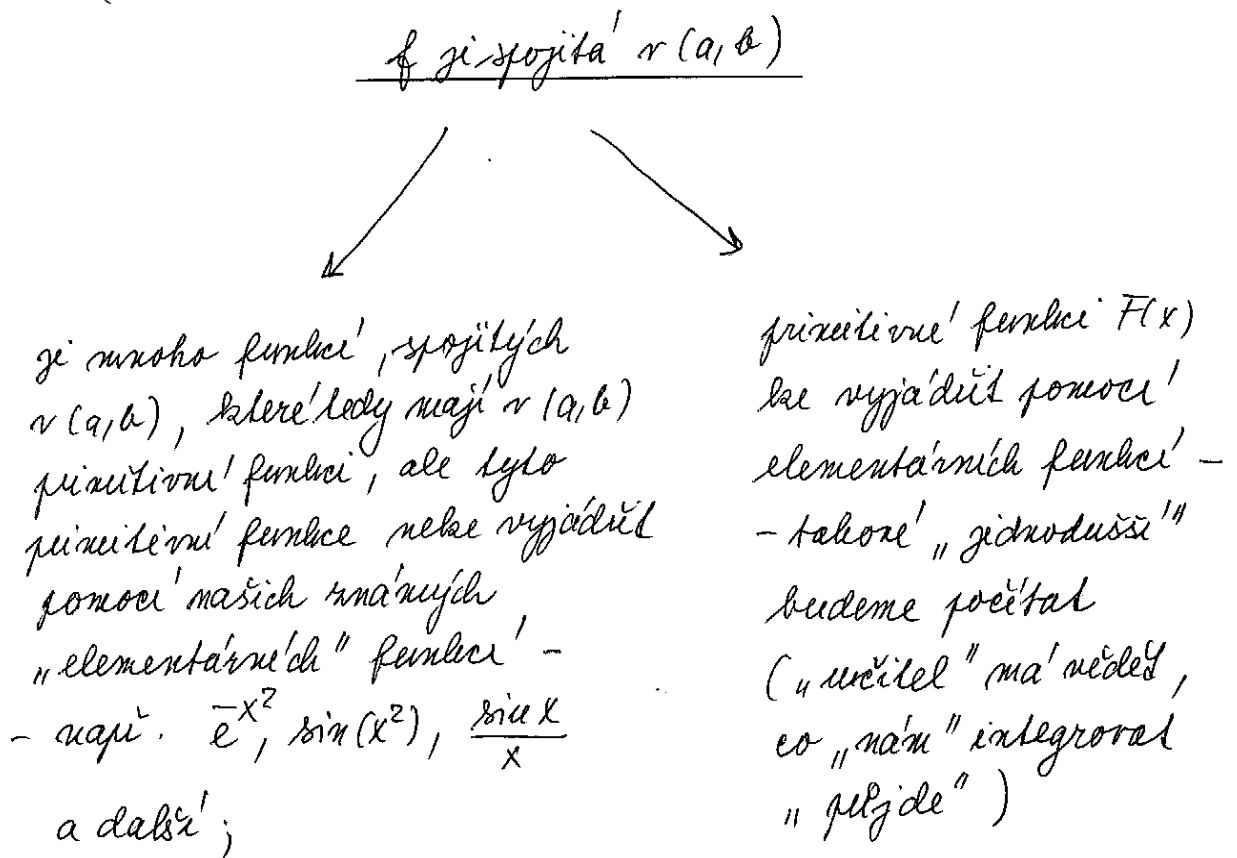 f je spojitá v (a, b)
je mnoho funkcí, spojitých
v (a, b), které tedy mají v (a, b)
primitivní funkci, ale tyto
primitivní funkce nelze vyjádřit
pomocí našich známých
„elementárních" funkcí –
– např. e^{-x^2}, sin(x^2), \frac{sin x}{x}
a další;
primitivní funkci F(x)
lze vyjádřit pomocí
elementárních funkcí –
– takové „jednodušší"
budeme počítat
(„učitel" má vědět,
co „nám" integrovat
„půjde")